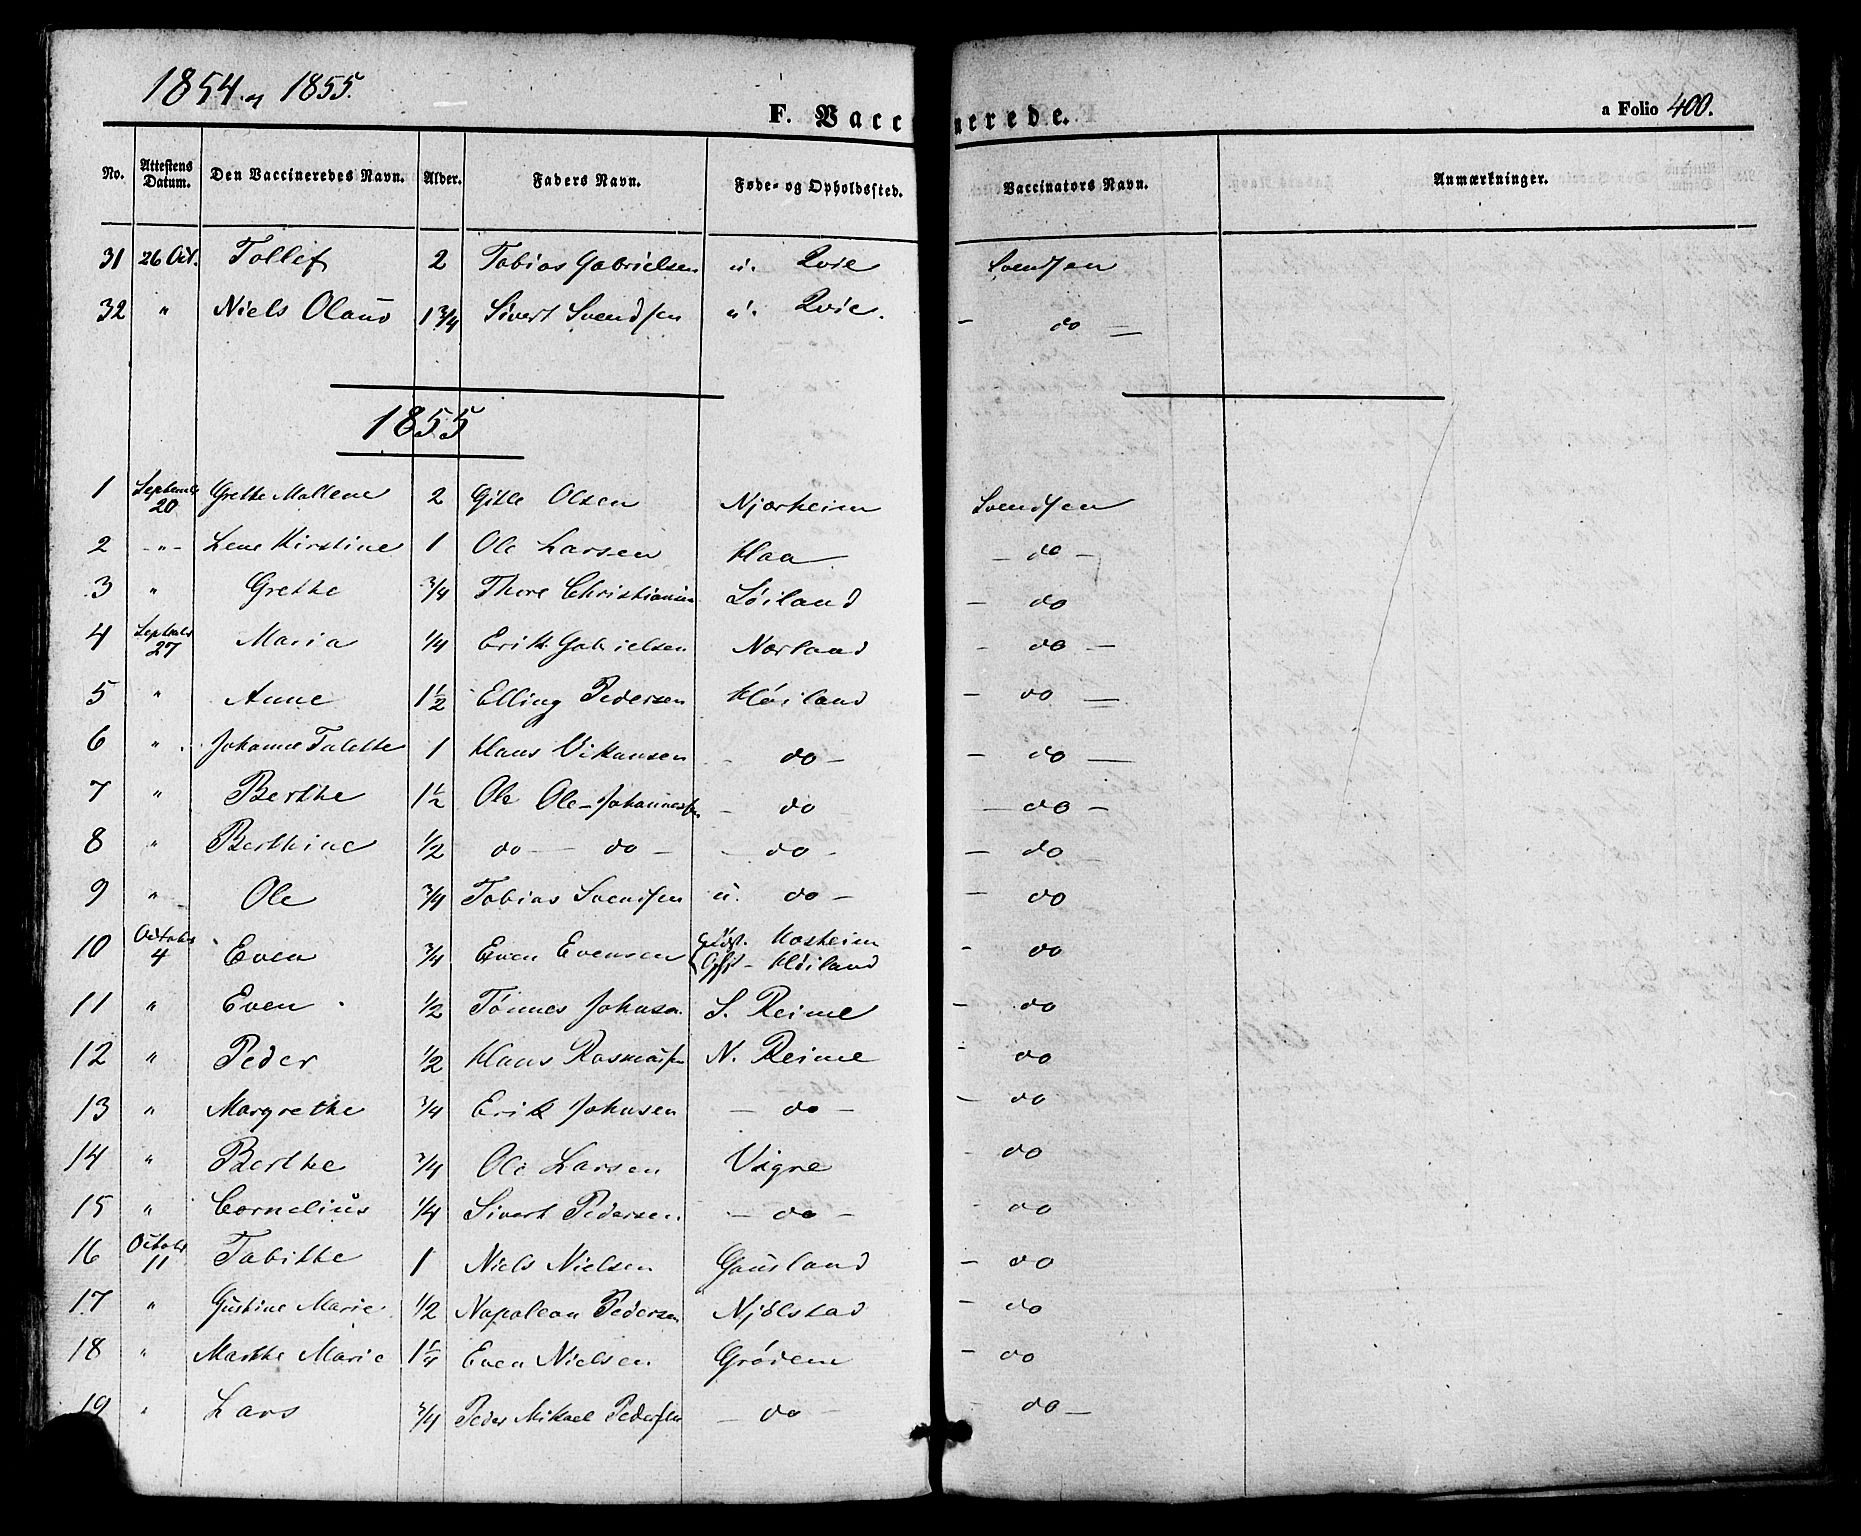 1854 og 1855.
F. Vaccinerede.
a Folio 400.
No. Attestens Datum. Den Vaccineredes Navn. Alder. Faders Navn. Føde- og Opholdssted. Vaccinators Navn. Anmærkninger.
31 26 Oct. Tollef 2 Tobias Gabrielsen u. Qvie Svendsen
32 " Niels Olaus 1 3/4 Sivert Svendsen u. Qvie. - do -
1855
1 Septemb 20 Grethe Mallene 2 Gitle Olsen Njærheim Svendsen
2 -"- Lene Kirstine 1 Ole Larsen Haa - do -
3 " Grethe 3/4 Thore Christiansen Løiland - do
4 Septbr 27 Maria 1/4 Erik Gabrielsen Nærland - do -
5 " Anne 1 1/2 Elling Pedersen Høiland - do -
6 " Johanne Talette 1 Hans Vikansen - do - - do -
7 " Berthe 1 1/2 Ole Ole-Johannessen - do - do -
8 " Berthine 1/2 do - do - - do - - do -
9 " Ole 3/4 Tobias Svendsen u. do - - do
10 Octobr 4 Even 3/4 Even Evensen Fødst. Hosheim - do
Opst - Høiland
11 " Even 1/2 Tønnes Johnsen S. Reime - do
12 " Peder 1/2 Hans Rasmussen N. Reime - do
13 " Margrethe 3/4 Erik Johnsen - do - - do
14 " Berthe 3/4 Ole Larsen Vigre - do
15 " Cornelius 1/4 Sivert Pedersen. - do - - do
16 Octobr 11 Tabithe 1 Niels Nielsen Gausland - do
17 " Gustine Marie 1/2 Napoleon Pedersen Njølstad - do
18 " Marthe Marie 1 1/4 Even Nielsen Grødem - do
19 " Lars 3/4 Peder Mikael Pedersen - do - - do -